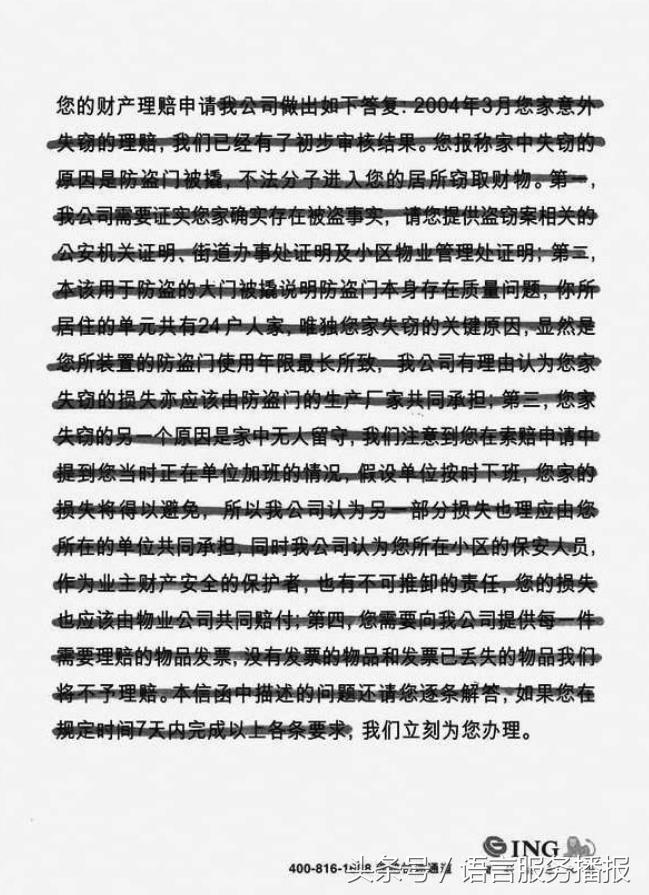 您的财产理赔申请我公司做出如下答复：2004年3月您家意外
失窃的理赔，我们已经有了初步审核结果。您报称家中失窃的
原因是防盗门被撬，不法分子进入您的居所窃取财物。第一，
我公司需要证实您家确实存在被盗事实，请您提供盗窃案相关的
公安机关证明、街道办事处证明及小区物业管理处证明；第二，
本该用于防盗的大门被撬说明防盗门本身存在质量问题，你所
居住的单元共有24户人家，唯独您家失窃的关键原因，显然是
您所装置的防盗门使用年限最长所致，我公司有理由认为您家
失窃的损失亦应该由防盗门的生产厂家共同承担；第三，您家
失窃的另一个原因是家中无人留守，我们注意到您在索赔申请中
提到您当时正在单位加班的情况，假设单位按时下班，您家的
损失将得以避免，所以我公司认为另一部分损失也理应由您
所在的单位共同承担，同时我公司认为您所在小区的保安人员，
作为业主财产安全的保护者，也有不可推卸的责任，您的损失
也应该由物业公司共同赔付；第四，您需要向我公司提供每一件
需要理赔的物品发票，没有发票的物品和发票已丢失的物品我们
将不予理赔。本信函中描述的问题还请您逐条解答，如果您在
规定时间7天内完成以上各条要求，我们立刻为您办理。
ING
400-816-1
头条号/语言服务播报